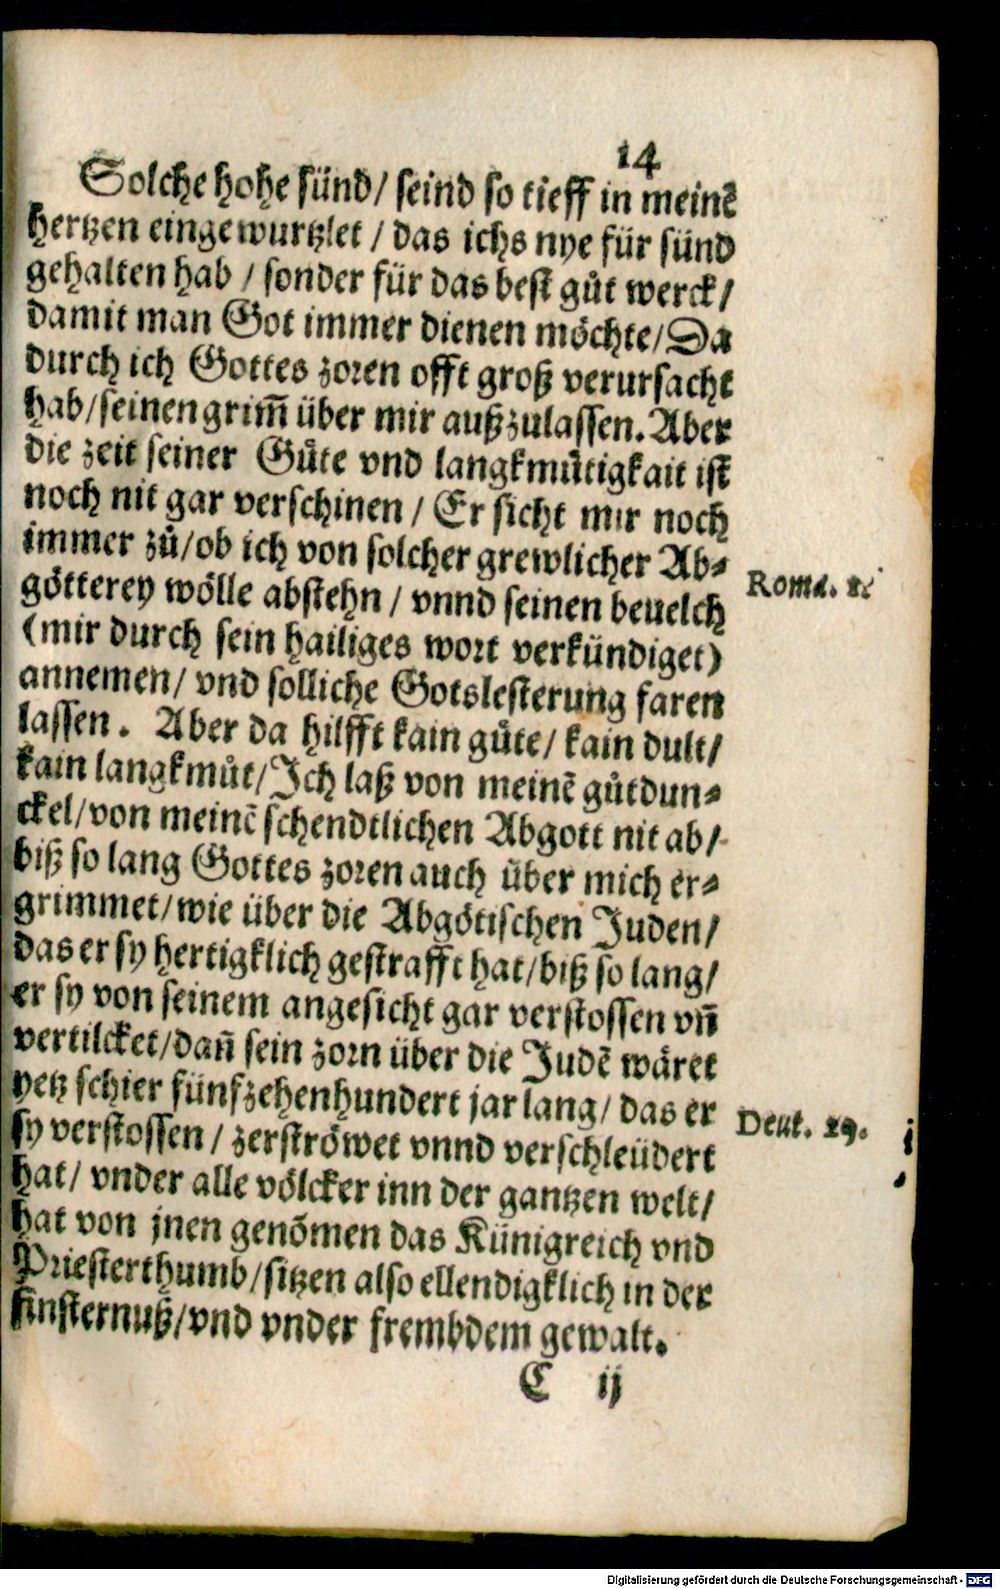 14
Solche hohe sünd/ seind so tieff in meinẽ
hertzen eingewurtzlet / das ichs nye für sünd
gehalten hab / sonder für das best gůt werck/
damit man Got immer dienen möchte/Da
durch ich Gottes zoren offt groß verursacht
hab/seinen grim̃ über mir außzulassen. Aber
die zeit seiner Gůte vnd langkmůtigkait ist
noch nit gar verschinen / Er sicht mir noch
immer zů/ob ich von solcher grewlicher Ab⸗
götterey wölle abstehn / vnnd seinen beuelch
Roma. 2.
(mir durch sein hailiges wort verkündiget)
annemen/ vnd solliche Gotslesterung faren
lassen. Aber da hilfft kain gůte/ kain dult/
kain langkmůt/Ich laß von meinẽ gůtdun⸗
ckel/von meinẽ schendtlichen Abgott nit ab/
biß so lang Gottes zoren auch über mich er⸗
grimmet/wie über die Abgötischen Juden/
das er sy hertigklich gestrafft hat/biß so lang/
er sy von seinem angesicht gar verstossen vñ
vertilcket/dañ sein zorn über die Judẽ wäret
yetz schier fünfzehenhundert jar lang/ das er
Deut. 29.
sy verstossen / zerströwet vnnd verschleüdert
hat/ vnder alle völcker inn der gantzen welt/
hat von jnen genõmen das Künigreich vnd
Priesterthumb/sitzen also ellendigklich in der
finsternuß/vnd vnder frembdem gewalt.
C ij
Digitalisierung gefördert durch die Deutsche Forschungsgemeinschaft - DFG